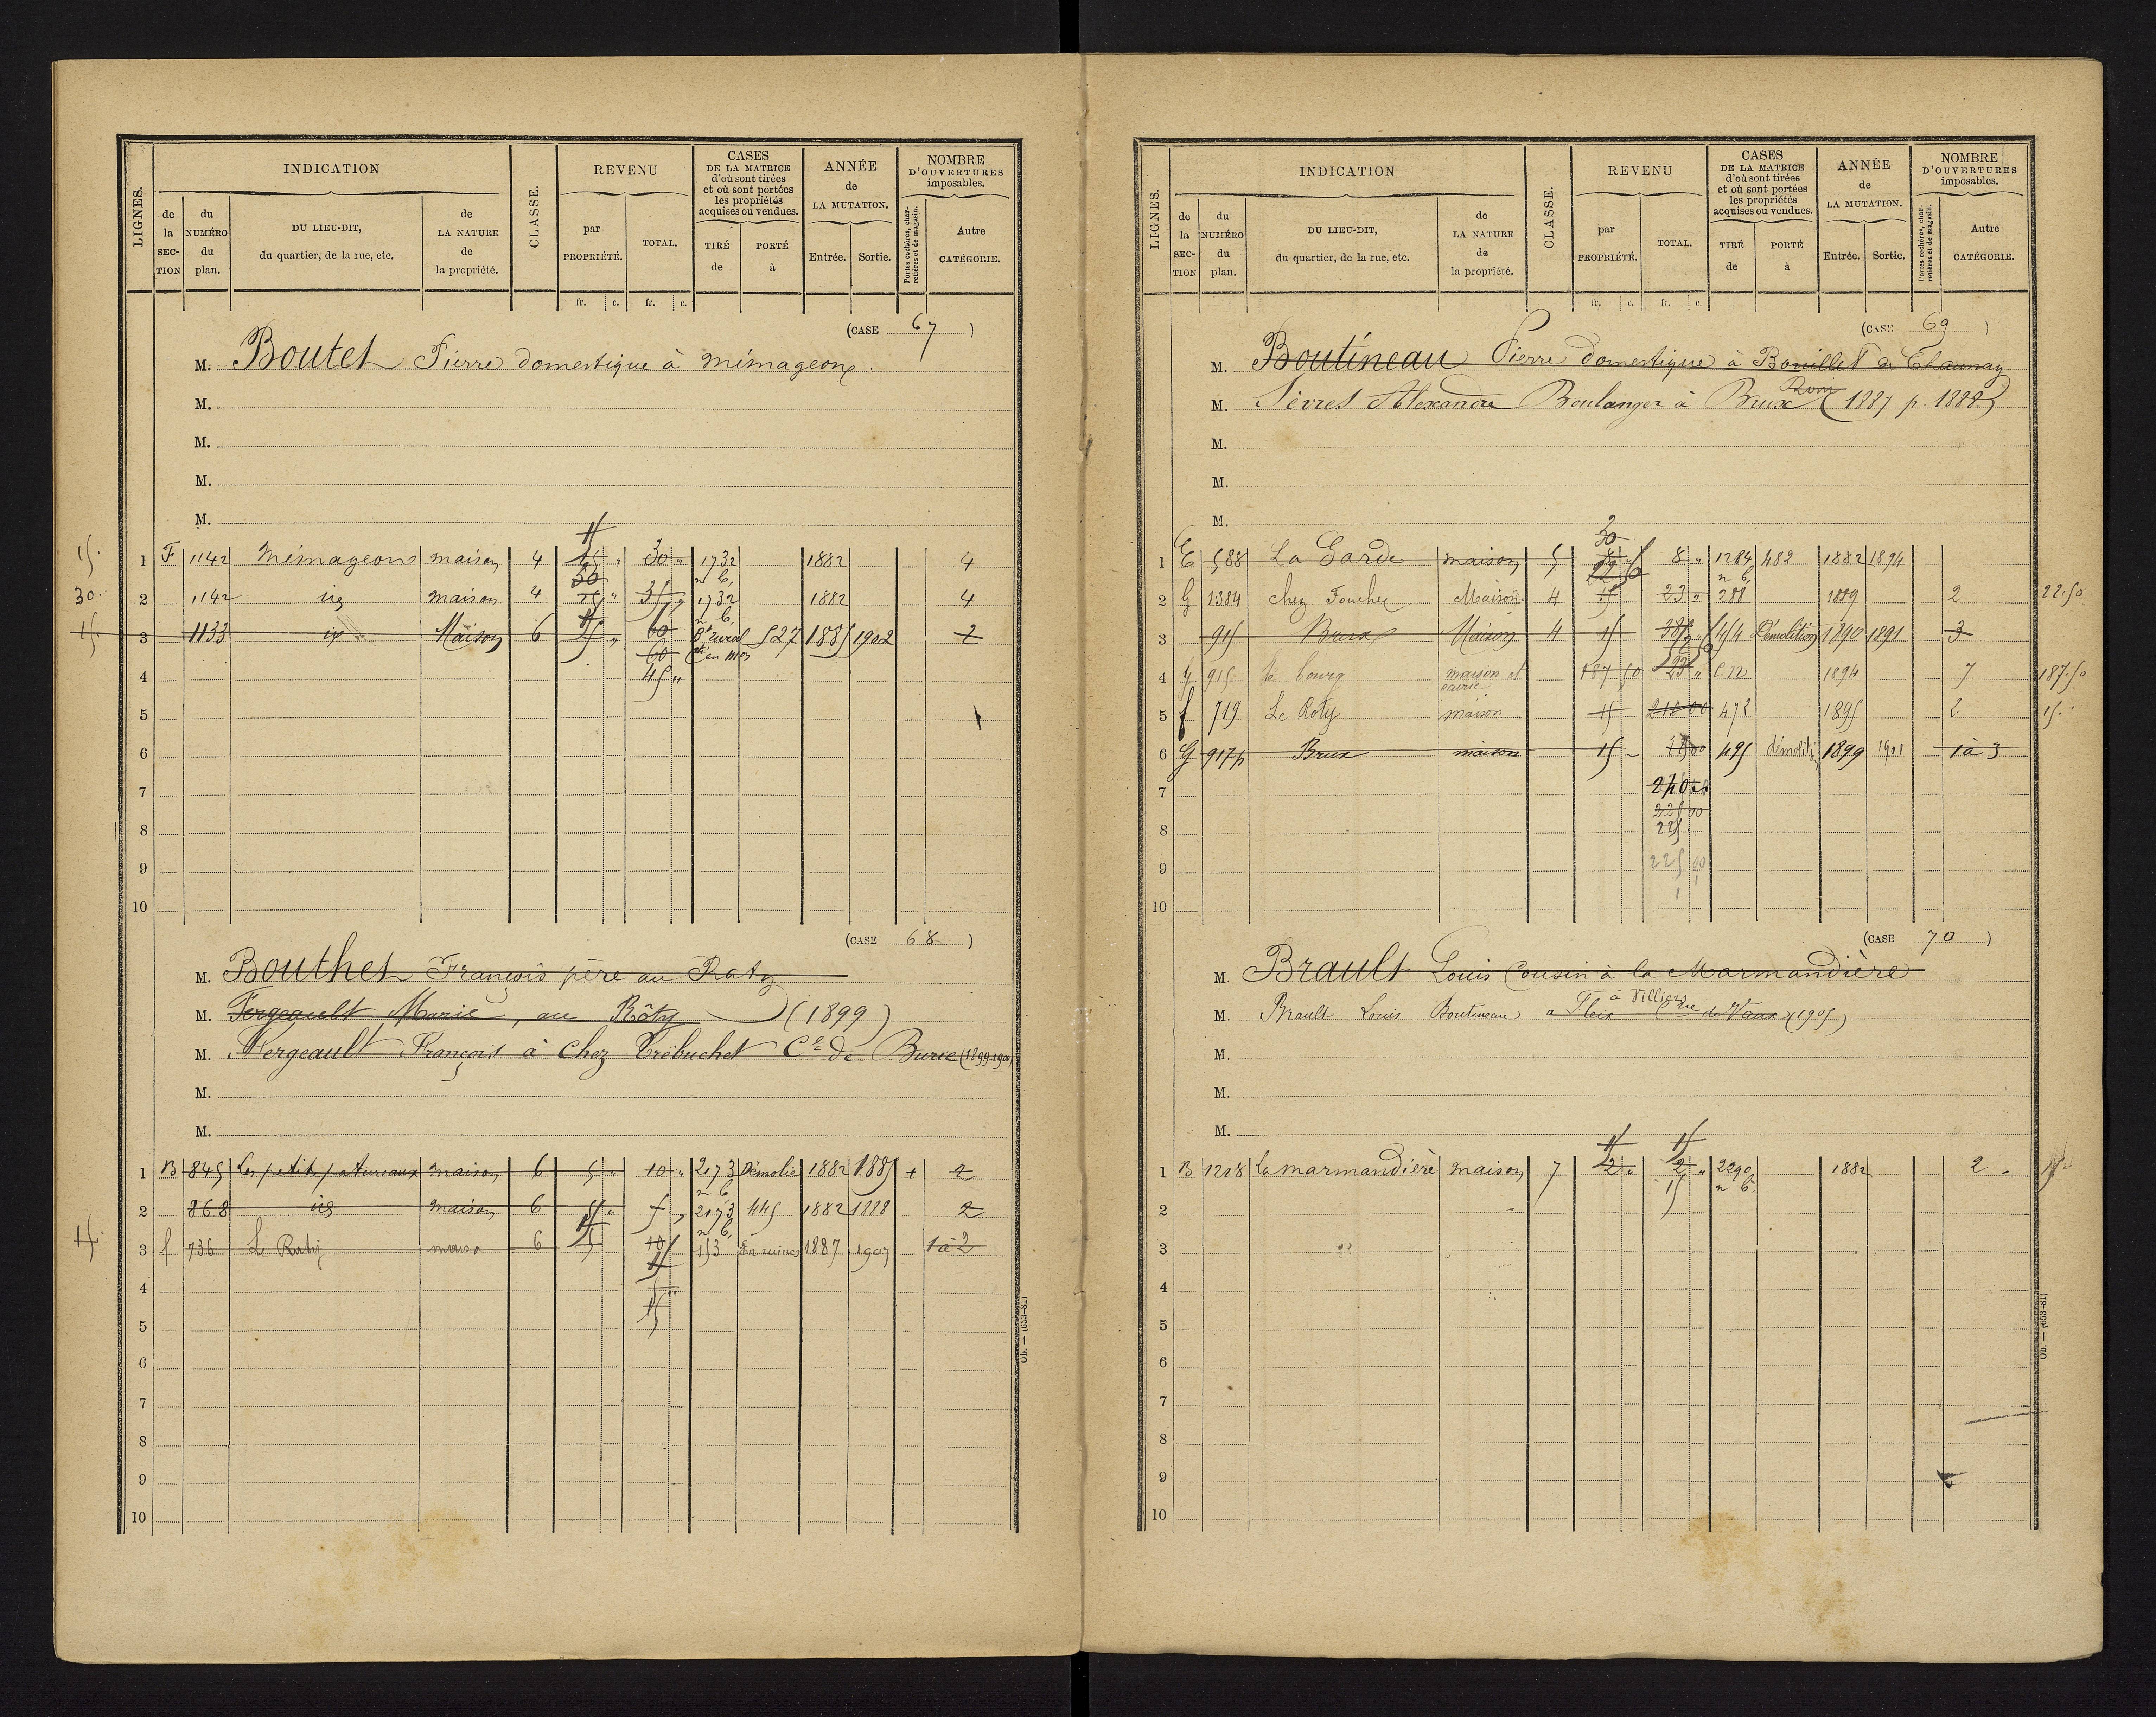 LIGNES.
INDICATION
de la SECTION
du NUMÉRO du plan.
DU LIEU-DIT, du quartier, de la rue, etc.
de LA NATURE de la propriété.
CLASSE.
REVENU
par PROPRIÉTÉ.
TOTAL.
CASES DE LA MATRICE d'où sont tirées et où sont portées les propriétés acquises ou vendues.
TIRÉ de
PORTÉ à
ANNÉE de LA MUTATION.
Entrée.
Sortie.
NOMBRE D'OUVERTURES imposables.
Portes cochères, charretières et de magasin.
Autre CATÉGORIE.
fr. c. fr. c.
(CASE 67)
M. Boutet Pierre domestique à Mémageons.
M.
M.
M.
M.
15
15. 1 F 1142 Mémageons maison 4 30 " 1732 1882 4
50 n b,
30. 2 1142 id maison 4 35 " 1732 1882 4
n b,
15 3 1133 id Maison 6 5 " 60 527 1885 1902 2
60
4 45 "
5
6
7
8
9
10
(CASE 68)
M. Bouthet François père au Raty
M. Fergeault Marie, au Rôty (1899)
M. Fergeault François à Chez Trébuchet Cne de (1899-1900)
M.
M.
1 B 845 Les petits maison 6 5 " 10 " 2173 Démolie 1882 1885 + 2
n b,
2 868 id maison 6 5 " 5 " 2173 445 1882 1888 2
n b,
15. 3 f 736 Le Raty 6 15 10 153 En ruines 1887 1907 1 à 2
15
4
15
5
6
7
8
9
10
Ob. — (653-81)
LIGNES.
INDICATION
de la SECTION
du NUMÉRO du plan.
DU LIEU-DIT, du quartier, de la rue, etc.
de LA NATURE de la propriété.
CLASSE.
REVENU
par PROPRIÉTÉ.
TOTAL.
CASES DE LA MATRICE d'où sont tirées et où sont portées les propriétés acquises ou vendues.
TIRÉ de
PORTÉ à
ANNÉE de LA MUTATION.
Entrée.
Sortie.
NOMBRE D'OUVERTURES imposables.
Portes cochères, charretières et de magasin.
Autre CATÉGORIE.
fr. c. fr. c.
(CASE 69)
M. Boutineau Pierre domestique à Bouillet de Chaunay
Rom
M. Sèvres Alexandre Boulanger à Brux (1887 p. 1888)
M.
M.
M.
30
1 E 588 La Garde maison 5 8 " 8 " 1284 482 1882 1894
22 50 n b,
2 G 1384 chez Foucher Maison 4 15 23 " 288 1889 2 22.50
3 915 Brux Maison 4 15 38 " 454 Démolition 1890 1891 3
4 G 915 le bourg maison et 187 50 1894 7 187.50
5 f 719 Le Roty maison 15 212 00 472 1895 2 15.
6 G 917p Brux maison 15 495 1899 1901 1 à 3
7 240
225 00
8 225
9 225 00
10
(CASE 70)
M. Brault Louis Cousin à la Marmandière
à Villiers
M. Brault Louis Boutineau a Fleix Cne de Vaux (1905)
M.
M.
M.
15 15
1 B 1218 la marmandière maison 7 2 " 2 " 2290 1882 2 15
15 n b.
2
3
4
5
6
7
8
9
10
Ob. — (653-81)